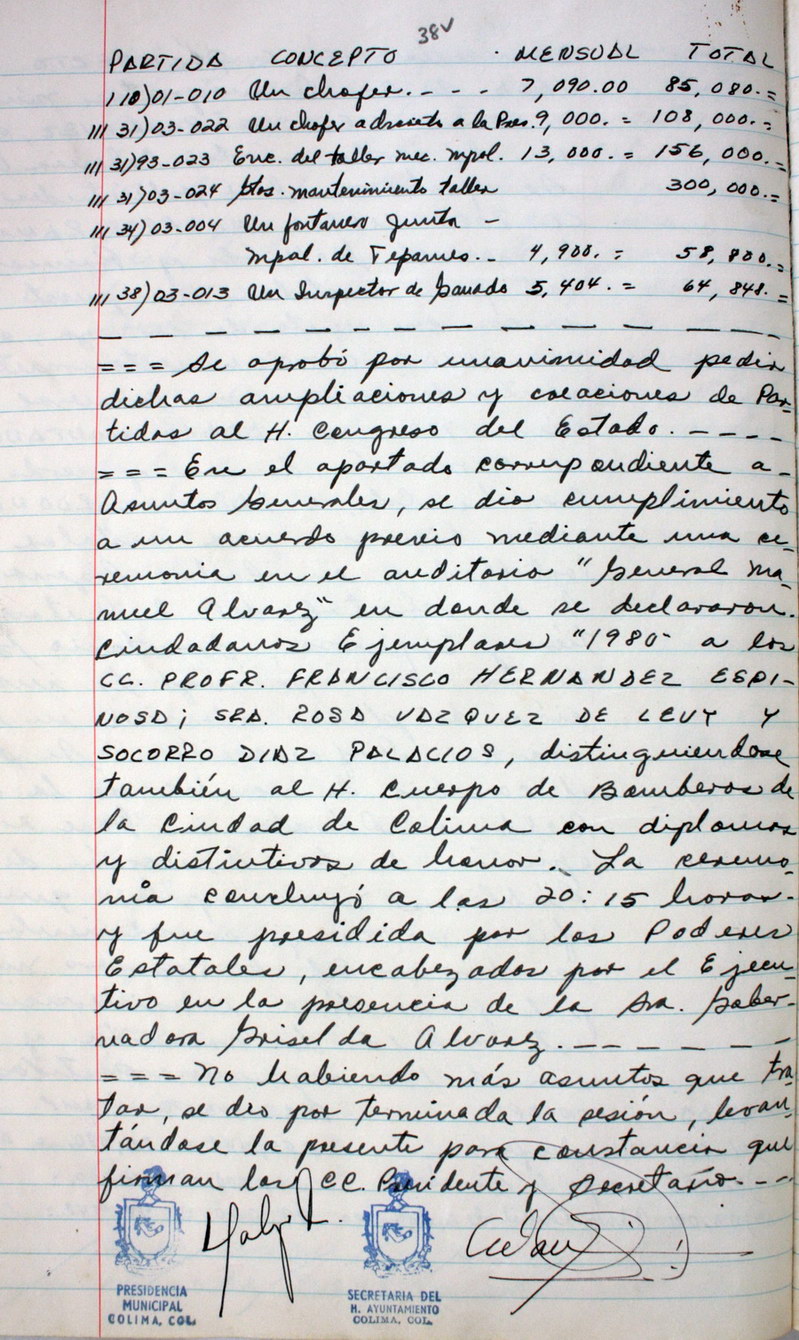 38v
PARTIDA CONCEPTO MENSUAL TOTAL
110)01-010 Un chofer. - - - 7,090.00 85,080.=
/// 31)03-022 Un chofer adscrito a la Pres. 9,000.= 108,000.=
/// 31)93-023 Enc. del taller mec. mpal. 13,000.= 156,000.=
/// 31)03-024 Gtos. mantenimiento taller 300,000.=
/// 34)03-004 Un fontanero Junta -
Mpal. de Tepames. - 4,900.= 58,800.=
/// 38)03-013 Un Inspector de Ganado 5,404.= 64,848.=
— — — — — — — — — — — — — —
= = = Se aprobó por unanimidad pedir
dichas ampliaciones y creaciones de Par-
tidas al H. Congreso del Estado. - - - -
= = = En el apartado correspondiente a-
Asuntos Generales, se dio cumplimiento
a un acuerdo previo mediante una ce-
remonia en el auditorio "General Ma-
nuel Alvarez" en donde se declararon.
Ciudadanos Ejemplares "1980- a los
CC. PROFR. FRANCISCO HERNANDEZ ESPI-
NOSA; SRA. ROSA VAZQUEZ DE LEVY Y
SOCORRO DIAZ PALACIOS, distinguiendose
también al H. Cuerpo de Bomberos de
la Ciudad de Colima con diplomas
y distintivos de honor. La ceremo-
nia concluyó a las 20:15 horas-
y fue presidida por los Poderes
Estatales, encabezados por el Ejecu-
tivo en la presencia de la Sra. Gober-
nadora Griselda Alvarez. - - - - - -
= = = No habiendo más asuntos que tra-
tar, se dio por terminada la sesión, levan-
tándose la presente para constancia que
firman los CC. Presidente y Secretario. - -
PRESIDENCIA
MUNICIPAL
COLIMA, COL.
SECRETARIA DEL
H. AYUNTAMIENTO
COLIMA, COL.